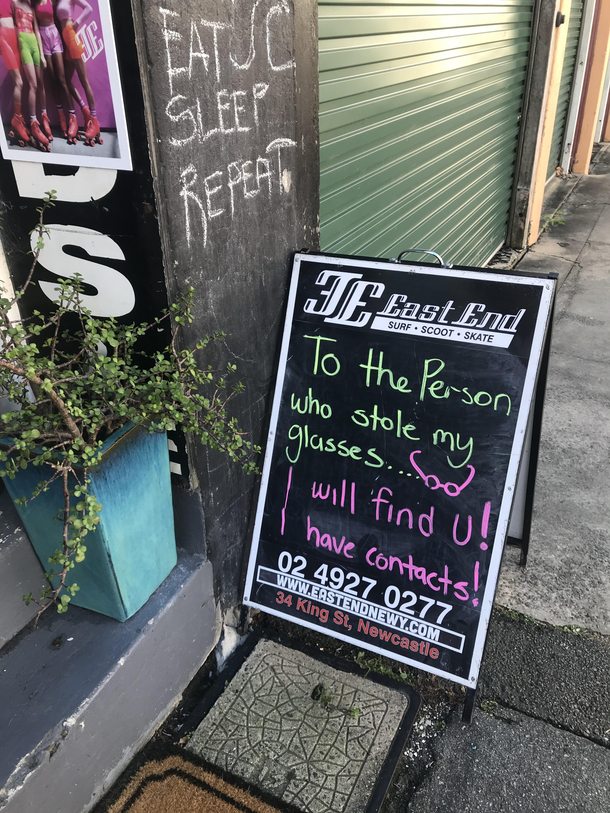 EAT
SLEEP
REPEAT
S
JE East End
SURF • SCOOT • SKATE
To the Person
who stole my
glasses....
I will find U!
I have contacts!
02 4927 0277
WWW.EASTENDNEWY.COM
34 King St, Newcastle